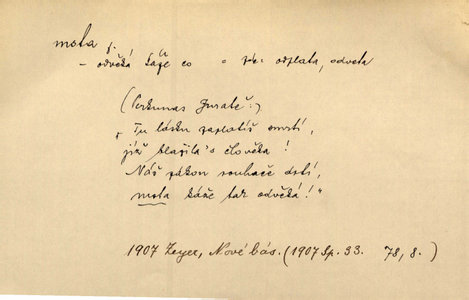 msta f.
– odvěká káže co o pův. odplata, odveta
(Perkunas Juratě:)
„Tu lásku zaplatíš smrtí,
jíž blažila's člověka!
Náš zákon rouhače drtí,
msta káže tak odvěká!"
1907 Zeyer, Nové bás. (1907 Sp. 33. 78, 8.)